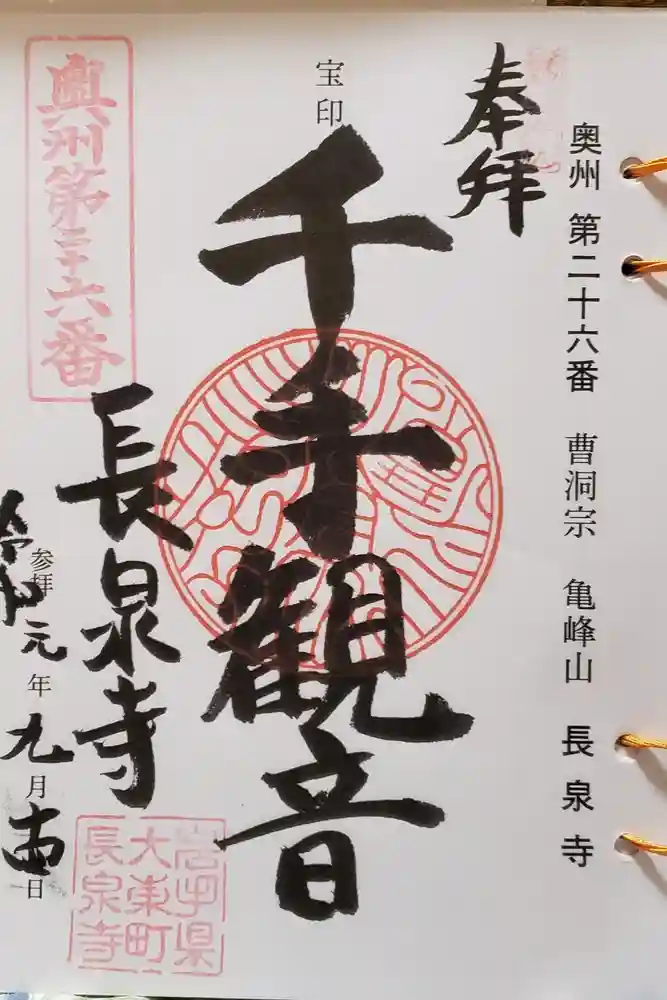 奥州 第二十六番 曹洞宗 亀峰山 長泉寺
奉拝
宝印
千手観音
奥州第二十六番
長泉寺
参拝
令和元年九月十四日
岩手県
大東町
長泉寺